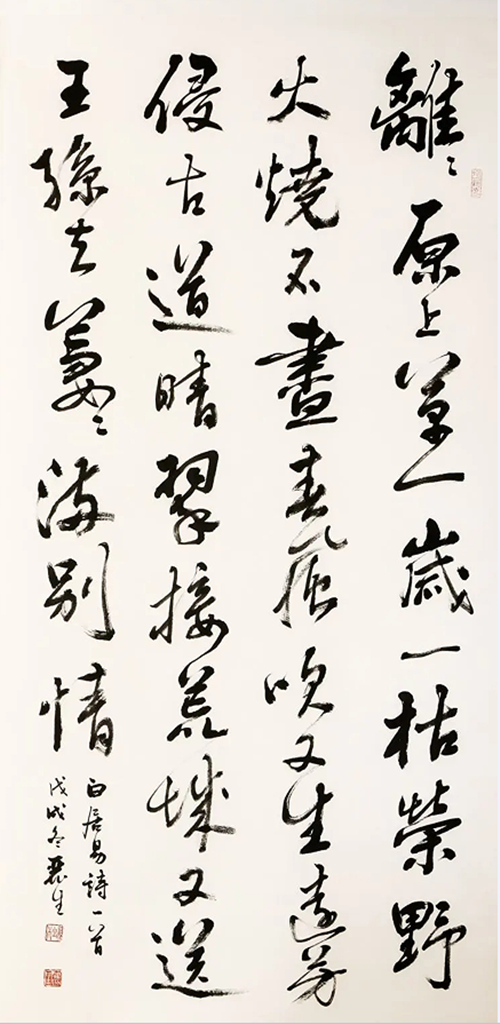 離〻原上草一歲一枯榮野
火燒不盡春風吹又生遠芳
侵古道晴翠接荒城又送
王孫去萋〻滿別情
白居易詩一首
戊戌冬